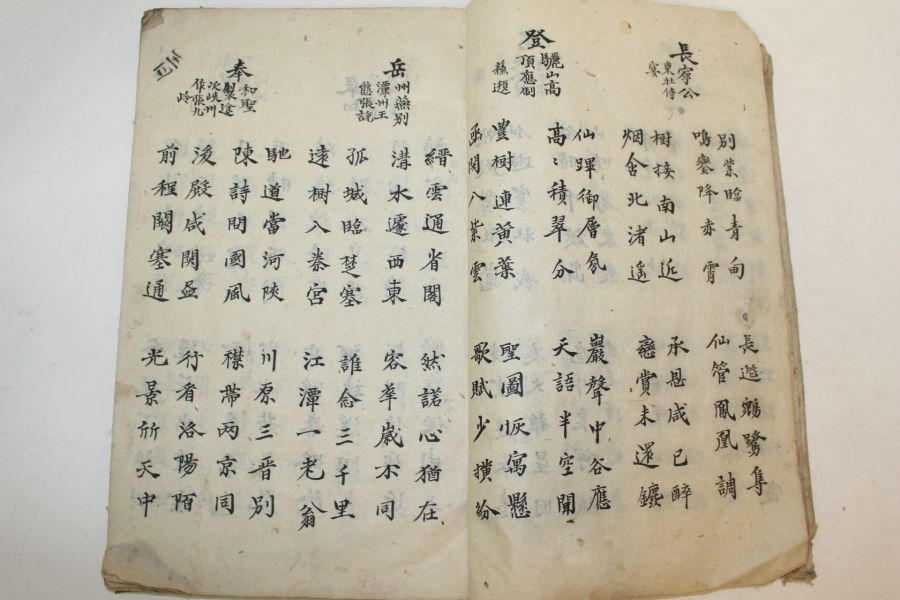 長寧公
東壯侍
宴
別業臨青甸
鳴鑾降赤霄
長筵鵷鷺集
仙管鳳凰調
樹接南山近
烟含北渚遙
承恩咸已醉
戀賞未還鑣
登
驪山高
頂應制
蘇頲
仙蹕御層氛
高〻積翠分
巖聲中谷應
天語半空聞
豐樹連黃葉
函関入紫雲
聖圖恢寓懸
歌賦少橫紛
岳
州燕別
潭州王
熊張說
縉雲通省閣
溝水遽西東
然諾心猶在
容華歲不同
孤城臨楚塞
遠樹入秦宮
誰念三千里
江潭一老翁
奉
和聖
製途
次峽州
作張九
岭
馳道當河陝
陳詩問國風
川原三晉別
襟帶兩京同
後殿咸関盃
前程闕塞通
行看洛陽陌
光景丽天中